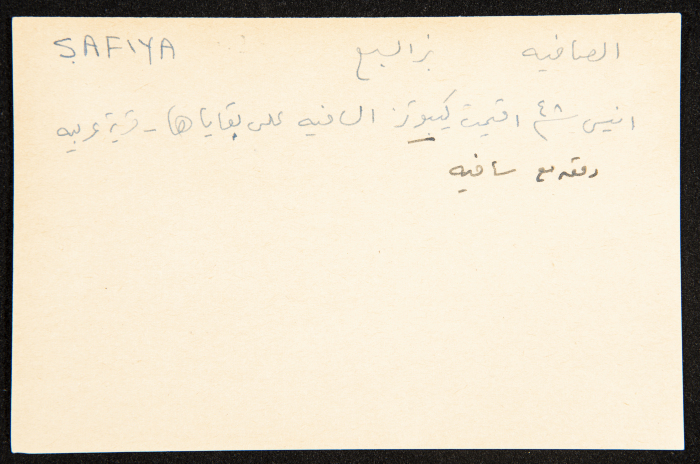 الصافيه بئر السبع SAFIYA
انيس ص ٤٨ اقيمت كيبوتز السافيه على بقاياها - قرية عربيه
دققه مع سافيه